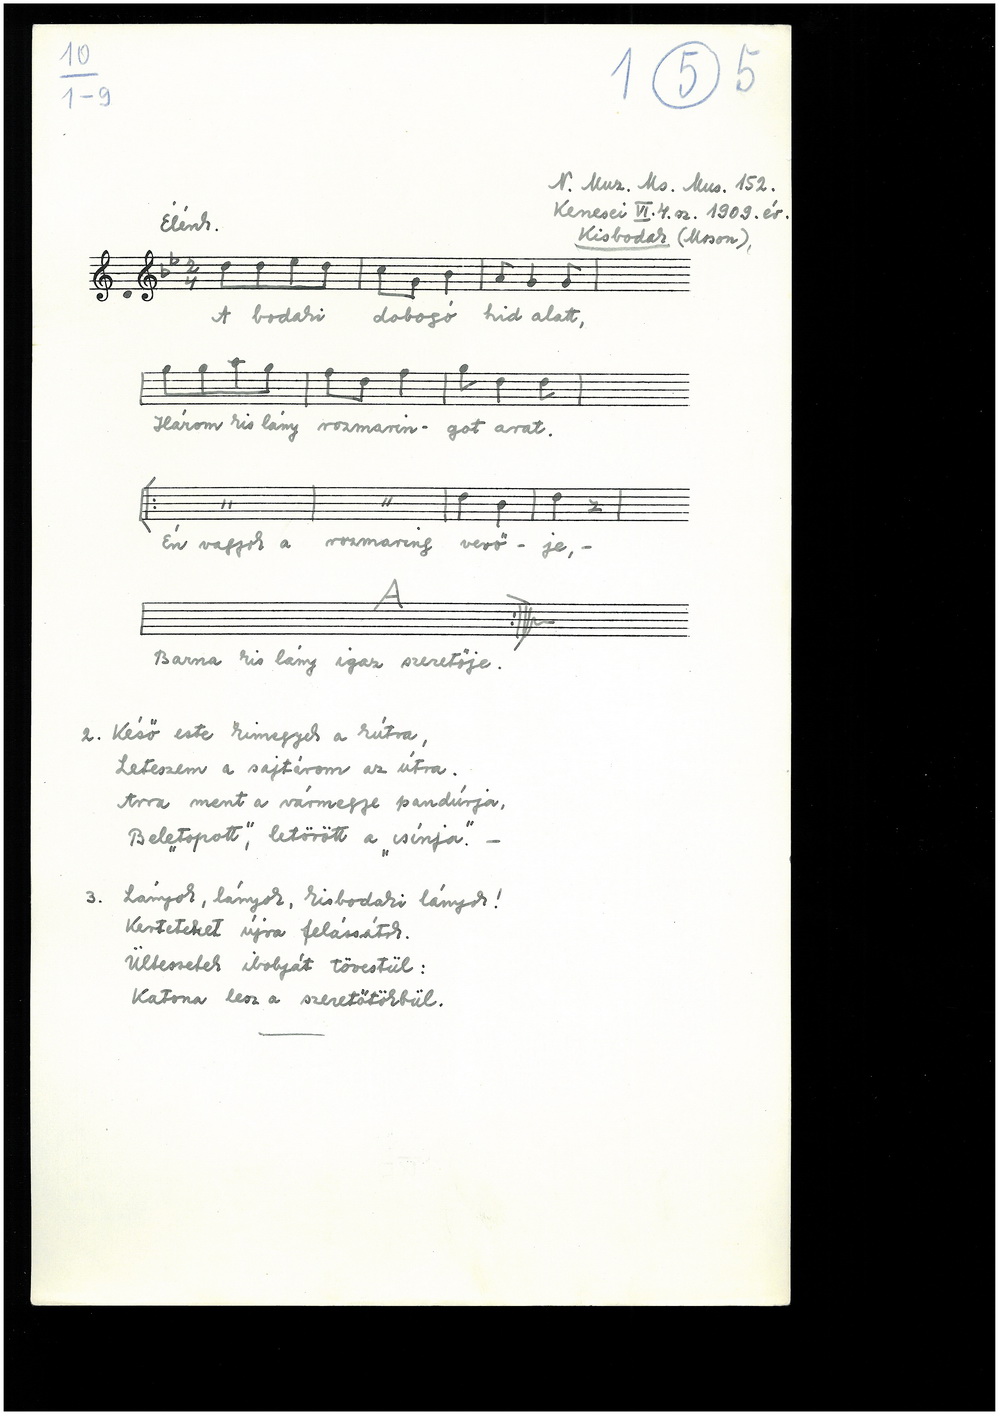 10
1-9
1 5 5
N. Muz. Ms. Mus. 152.
Kenesei VI.4.sz. 1909.év.
Kisbodak (Moson),
Élénk.
2
4
A bodaki dobogó hid alatt,
Három kis lány rozmarin- got arat.
Én vagyok a rozmaring verő - je, -
A
Barna kis lány igaz szeretője.
2. Késő este kimegyek a kútra,
Leteszem a sajtárom az útra.
Arra ment a vármegye pandúrja,
Bele„topott", letörött a „csínja". -
3. Lányok, lányok, kisbodaki lányok!
Kerteteket újra felássátok.
Ültessetek ibolyát tövestül:
Katona lesz a szeretőtökbül.